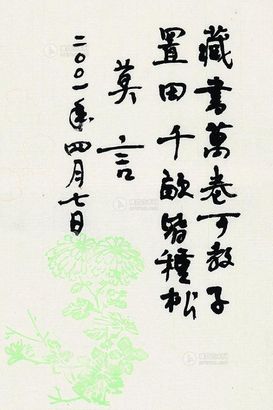 藏書萬卷可教子
置田千畝皆種松
莫言
二〇〇一年四月七日